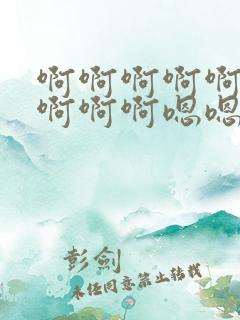 啊啊啊啊啊
啊啊啊嗯嗯
彭剑
未经同意禁止转载